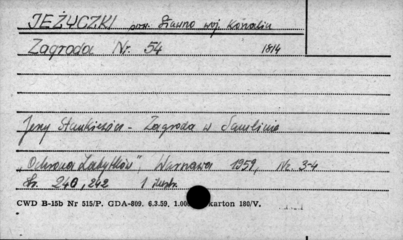 JEŻYCZKI pow. Sławno woj. Koszalin
Zagroda Nr. 54 1814
Jerzy Stankiewicz - Zagroda w
"Ochrona Zabytków", Warszawa 1959, Nr. 3-4
str. 240, 242 1 ilustr.
CWD B-15b Nr 515/P. GDA-809. 6.3.59. karton 180/V.